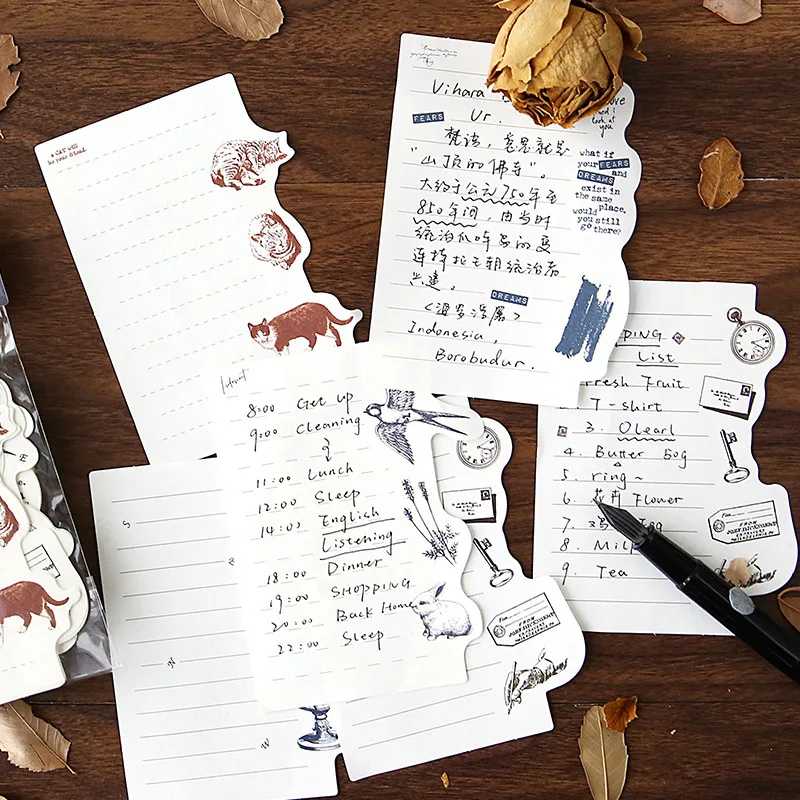 a CAT will
be your friend.
Vihara
Ur.
FEARS
梵语,意思就是
"山顶的佛寺"。
大约于公元750年至
850年间,由当时
统治爪哇岛的夏
连特拉王朝统治者
兴建。
DREAMS
<婆罗浮屠>
Indonesia,
Borobudur.
and I
look at
you
what if
your FEARS
and
DREAMS
exist in
the same
place.
would
you still
go there?
8:00 Get up
9:00 Cleaning
11:00 Lunch
12:00 Sleep
14:00 English
Listening
18:00 Dinner
19:00 SHOPPING
20:00 Back Home
22:00 Sleep
PING
List
Fresh Fruit
2. T-shirt
3. Olearl
4. Butter 50g
5. ring~
6. Flower
7. Egg
8. Milk
9. Tea
For
FROM
JOHN DICKINSON & Co
For
FROM
JOHN DICKINSON & Co
S
N
W